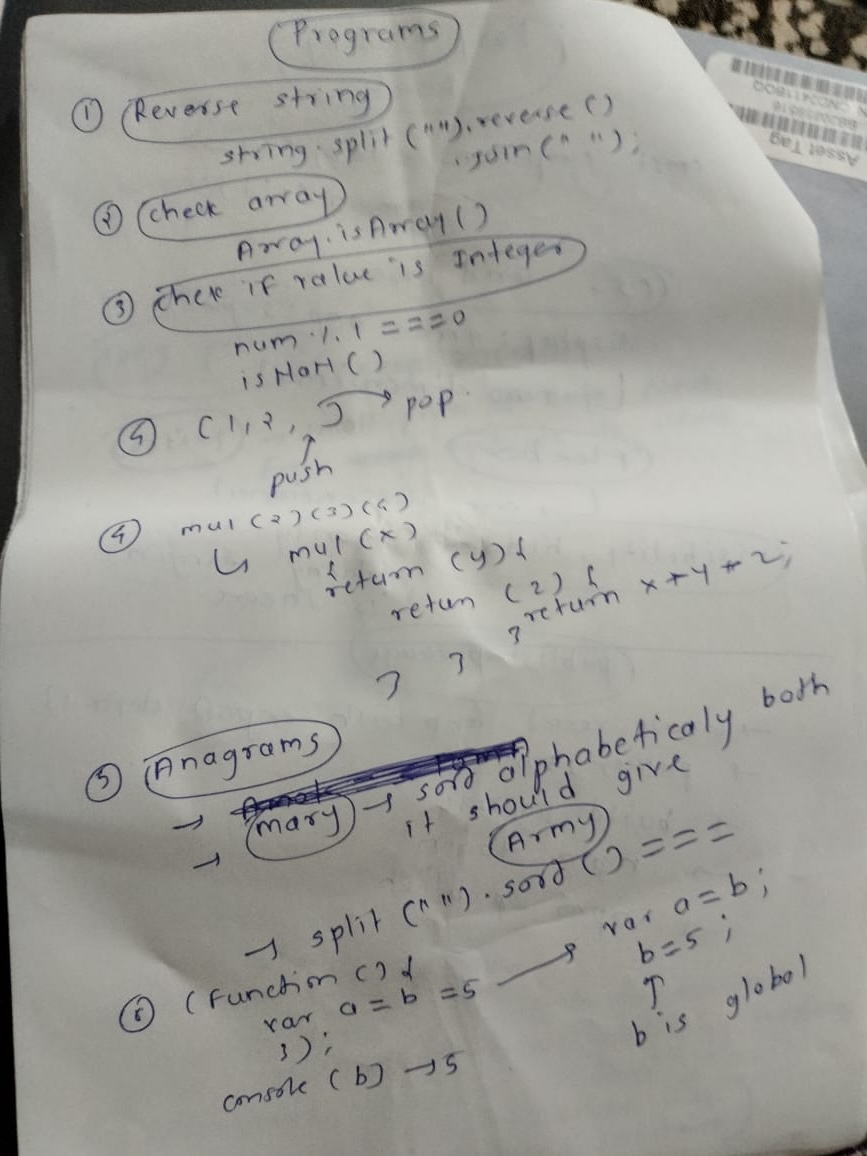 Programs
① Reverse string
string.split("").reverse()
.join(" ");
② check array
Array.isArray()
③ chek if value is Integer
num % 1 === 0
isNaN()
④ (1,2, ] → pop
push
④ mul(2)(3)(4)
↳ mul(x)
{return (y){
retun (z) {
return x*y*z;
} } }
⑤ Anagrams
→ mary → sort alphabeticaly both
→ it should give
Army
→ split("").sort() ===
⑥ (function() {
var a = b = 5 → var a = b;
b = 5;
});
↑
b is global
console (b) → 5
Asset Tag